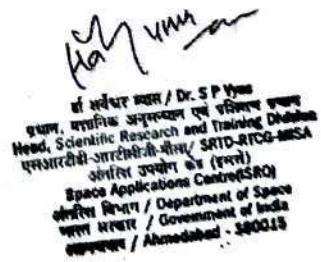 डॉ सर्वेश्वर व्यास / Dr. S P Vyas
प्रधान, वैज्ञानिक अनुसन्धान एवं प्रशिक्षण प्रभाग
Head, Scientific Research and Training Division
एसआरटीडी-आरटीसीजी-मीसा/ SRTD-RTCG-MISA
अंतरिक्ष उपयोग केंद्र (इसरो)
Space Applications Centre(ISRO)
अंतरिक्ष विभाग / Department of Space
भारत सरकार / Government of India
अहमदाबाद / Ahmedabad - 380015